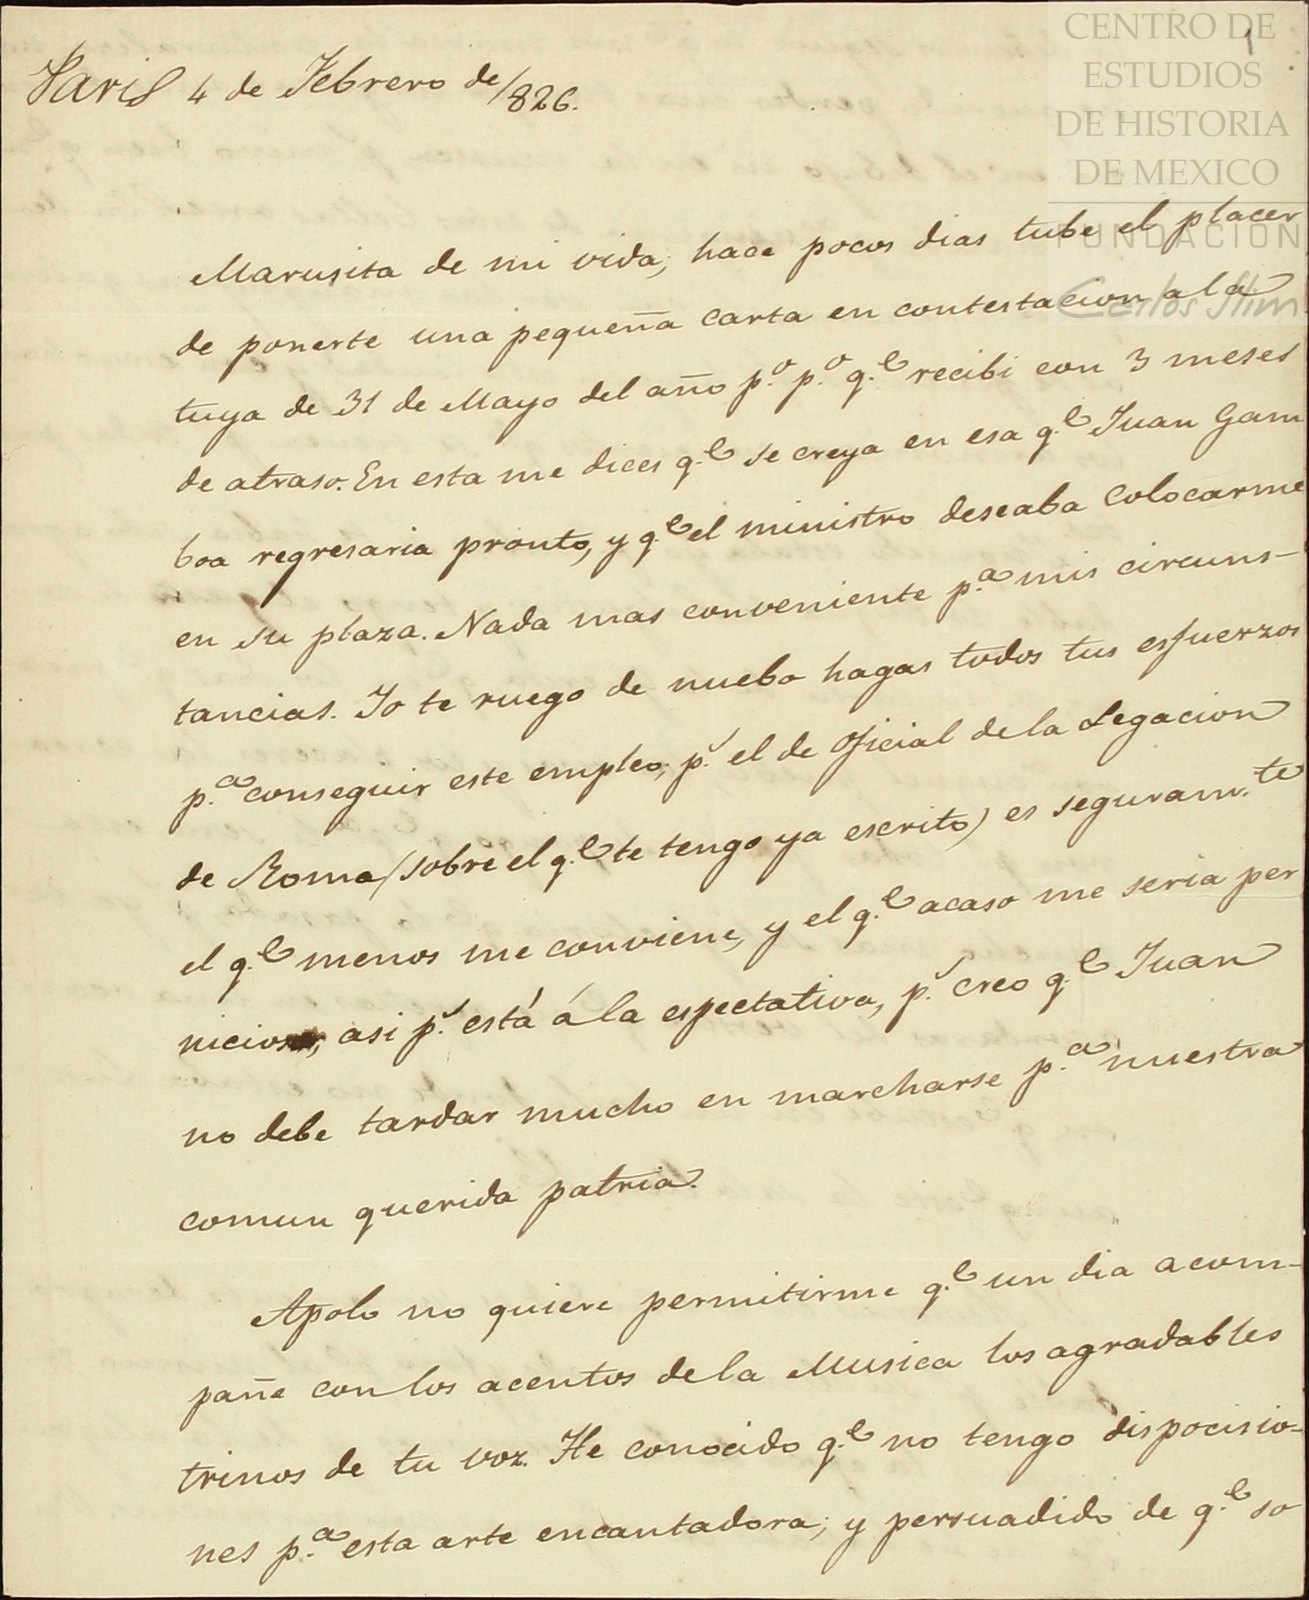 CENTRO DE
ESTUDIOS
DE HISTORIA
DE MEXICO
FUNDACIÓN
Carlos Slim
1
Paris 4 de Febrero de/826.
Marusita de mi vida, hace pocos dias tube el placer
de ponerte una pequeña carta en contestacion a la
tuya de 31 de Mayo del año p.º p.º q.e recibi con 3 meses
de atraso. En esta me dices q.e se creya en esa q.e Juan Gam
boa regresaria pronto, y q.e el ministro deseaba colocarme
en su plaza. Nada mas conveniente p.a mis circuns-
tancias. Yo te ruego de nuebo hagas todos tus esfuerzos
p.a conseguir este empleo, p.s el de oficial de la Legacion
de Roma (sobre el q.e te tengo ya escrito) es seguram.te
el q.e menos me conviene, y el q.e acaso me seria per
nicioso, asi p.s está á la espectativa, p.s creo q.e Juan
no debe tardar mucho en marcharse p.a nuestra
comun querida patria.
Apolo no quiere permitirme q.e un dia acom-
pañe con los acentos de la Musica los agradables
trinos de tu voz. He conocido q.e no tengo dispocisio-
nes p.a esta arte encantadora; y persuadido de q.e so